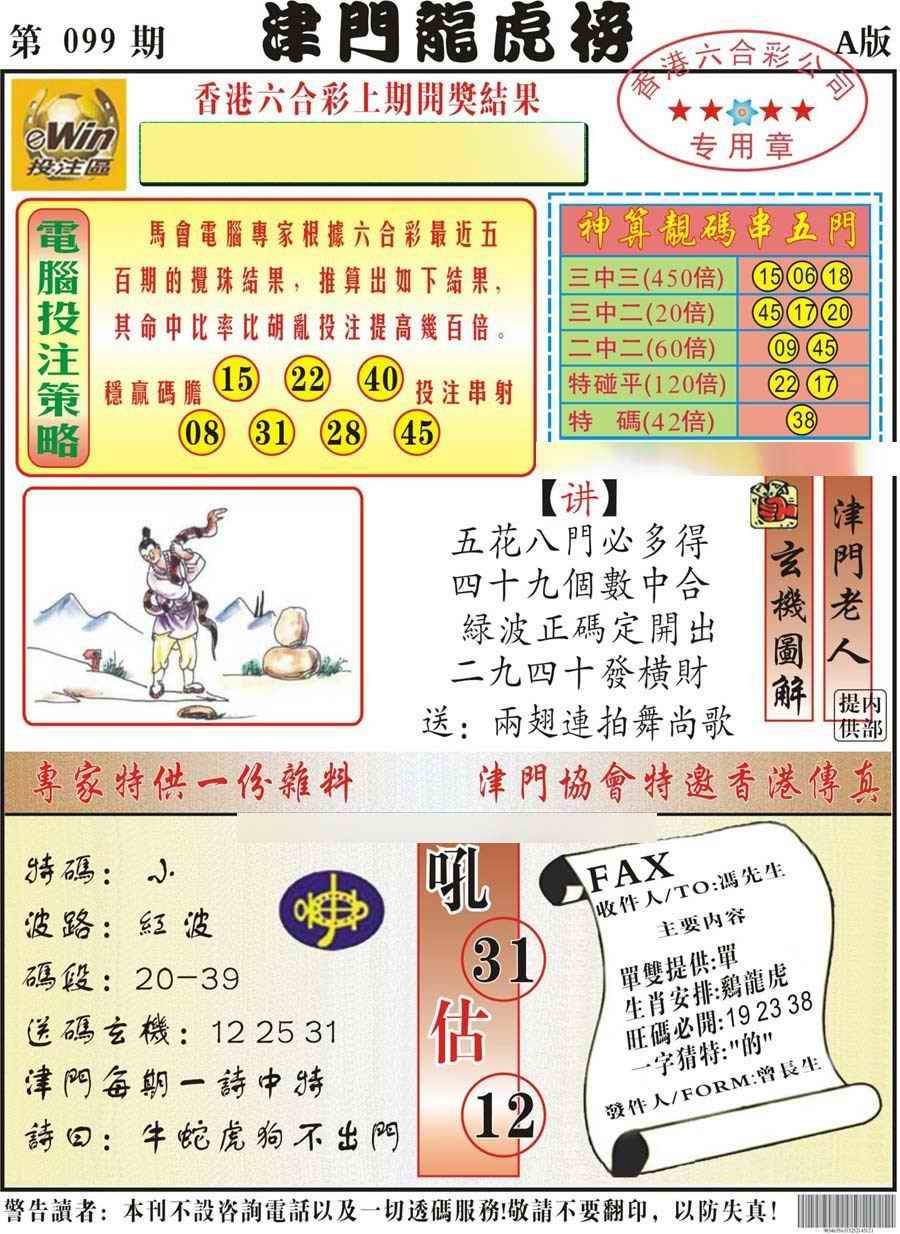 第 099 期
津門龍虎榜
A版
香港六合彩公司
专用章
eWin
投注區
香港六合彩上期開獎結果
電腦投注策略
馬會電腦專家根據六合彩最近五
百期的攪珠結果，推算出如下結果，
其命中比率比胡亂投注提高幾百倍。
穩贏碼膽 15 22 40 投注串射
08 31 28 45
神算靚碼串五門
三中三(450倍) 15 06 18
三中二(20倍) 45 17 20
二中二(60倍) 09 45
特碰平(120倍) 22 17
特 碼(42倍) 38
【讲】
五花八門必多得
四十九個數中合
綠波正碼定開出
二九四十發橫財
送：兩翅連拍舞尚歌
玄機圖解
津門老人
内部提供
專家特供一份雜料
津門協會特邀香港傳真
特碼：小
波路：紅波
碼段：20-39
送碼玄機：12 25 31
津門每期一詩中特
詩曰：牛蛇虎狗不出門
吼
31
估
12
FAX
收件人/TO:馮先生
主要内容
單雙提供:單
生肖安排:鷄龍虎
旺碼必開:19 23 38
一字猜特:"的"
發件人/FORM:曾長生
警告讀者：本刊不設咨詢電話以及一切透碼服務!敬請不要翻印，以防失真!